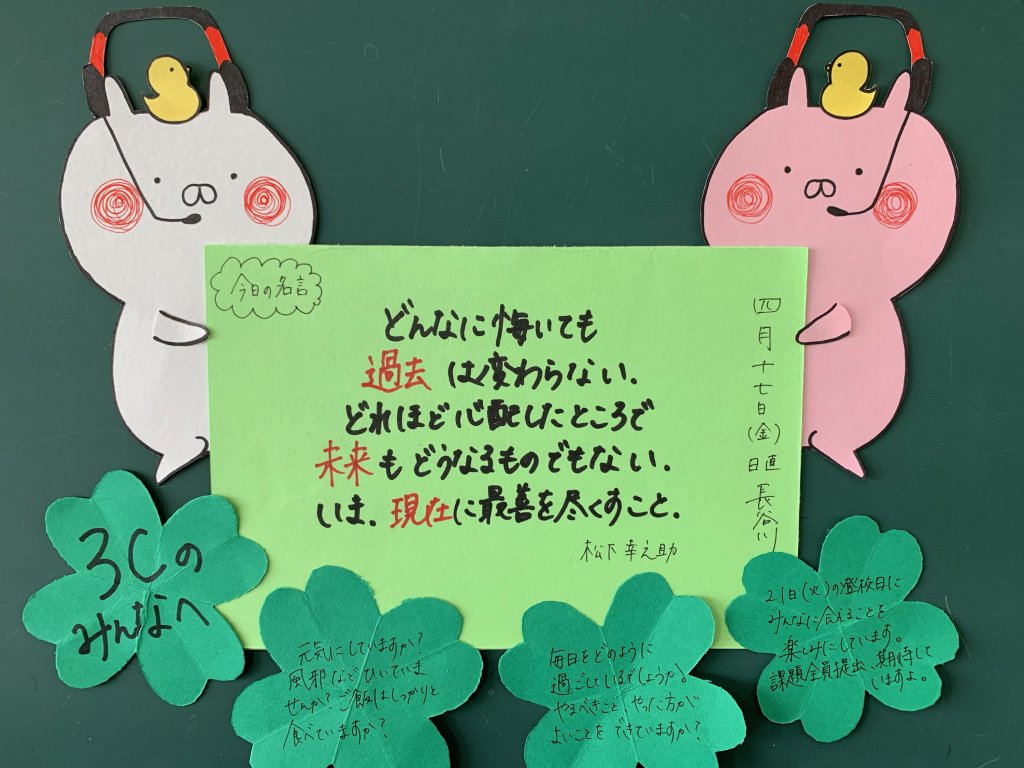 今日の名言
どんなに悔いても
過去は変わらない.
どれほど心配したところで
未来もどうなるものでもない.
いま.現在に最善を尽くすこと.
松下幸之助
四月十七日(金)日直 長谷川
3Cの
みんなへ
元気にしていますか?
風邪などひいていま
せんか?ご飯はしっかりと
食べていますか?
毎日をどのように
過ごしているでしょうか?
やるべきこと、やった方が
よいことをできていますか?
21日(火)の登校日に
みんなに会えることを
楽しみにしています。
課題全員提出、期待して
いますよ。